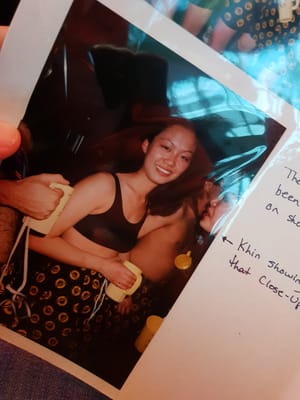 The
been
on sho
← Khin showin
that Close-Up